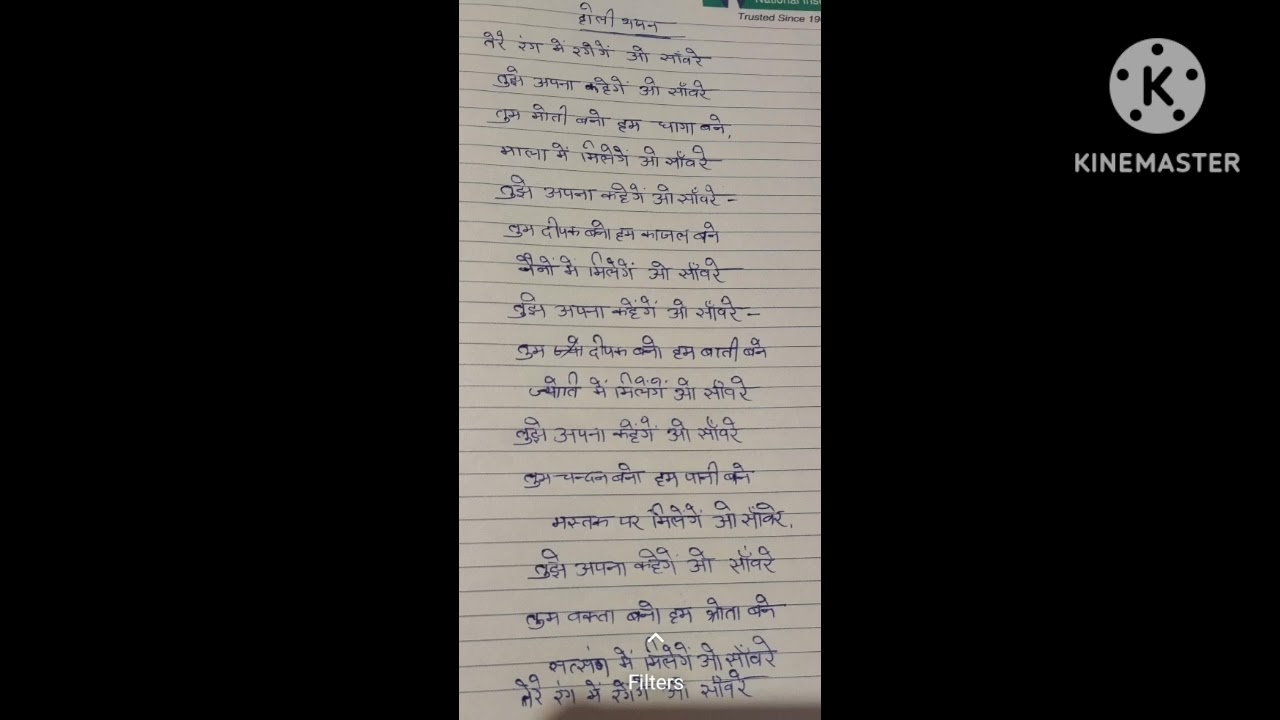 National Inst
Trusted Since 19
होली भजन
तेरे रंग में रंगेगें ओ साँवरे
तुझे अपना कहेगें ओ साँवरे
तुम मोती बनो हम धागा बने,
माला में मिलेगें ओ साँवरे
तुझे अपना कहेगें ओ साँवरे -
तुम दीपक बनो हम काजल बने
नैनों में मिलेगें ओ साँवरे
तुझे अपना कहेंगें ओ साँवरे -
तुम दीपक बनो हम बाती बने
ज्योति में मिलेंगें ओ साँवरे
तुझे अपना कहेंगें ओ साँवरे
तुम चन्दन बनो हम पानी बने
मस्तक पर मिलेगें ओ साँवरे,
तुझे अपना कहेगें ओ साँवरे
तुम वक्ता बनो हम श्रोता बने
सत्संग में मिलेगें ओ साँवरे
तेरे रंग में रंगेगें ओ साँवरे
Filters
K
KINEMASTER